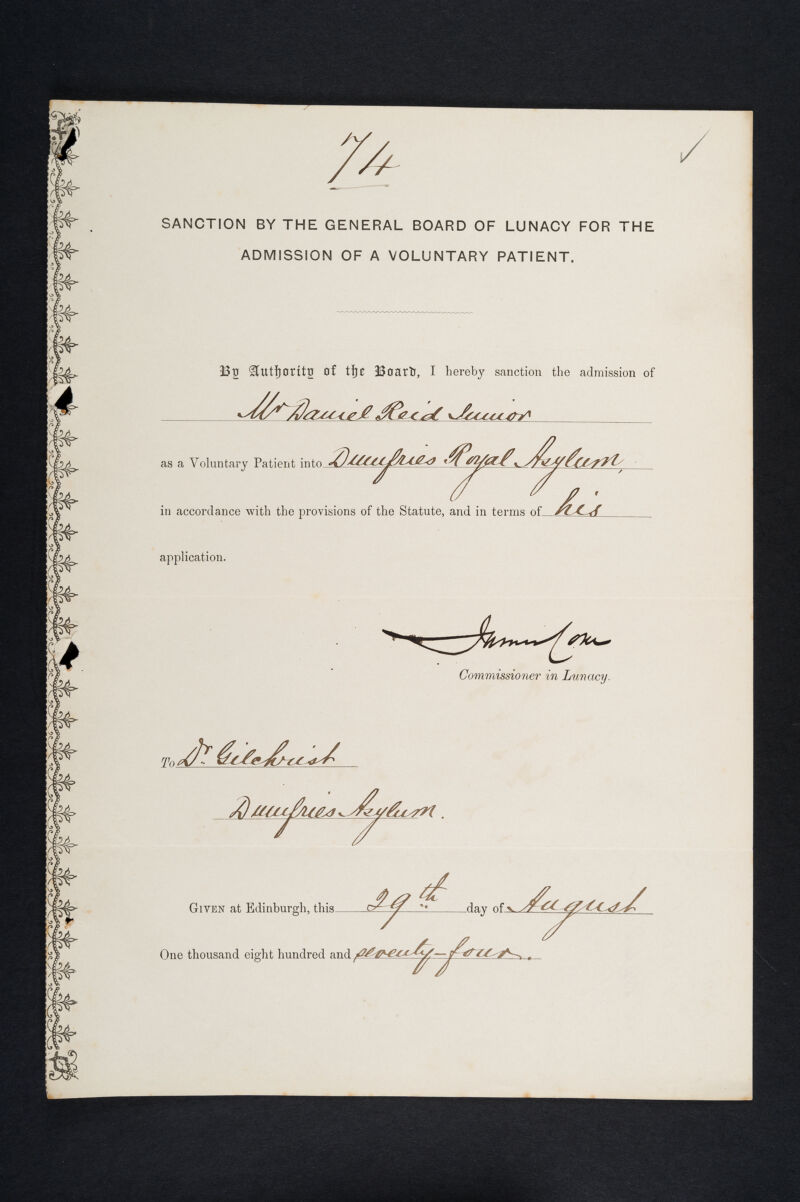 74
SANCTION BY THE GENERAL BOARD OF LUNACY FOR THE
ADMISSION OF A VOLUNTARY PATIENT.
By Authority of the Board, I hereby sanction the admission of
Mr Daniel Reid Junior
as a Voluntary Patient into Dumfries Royal Asylum,
in accordance with the provisions of the Statute, and in terms of his
application.
James Coxe
Commissioner in Lunacy.
To Dr. Gilchrist
Dumfries Asylum.
GIVEN at Edinburgh, this 29th day of August
One thousand eight hundred and seventy-four.